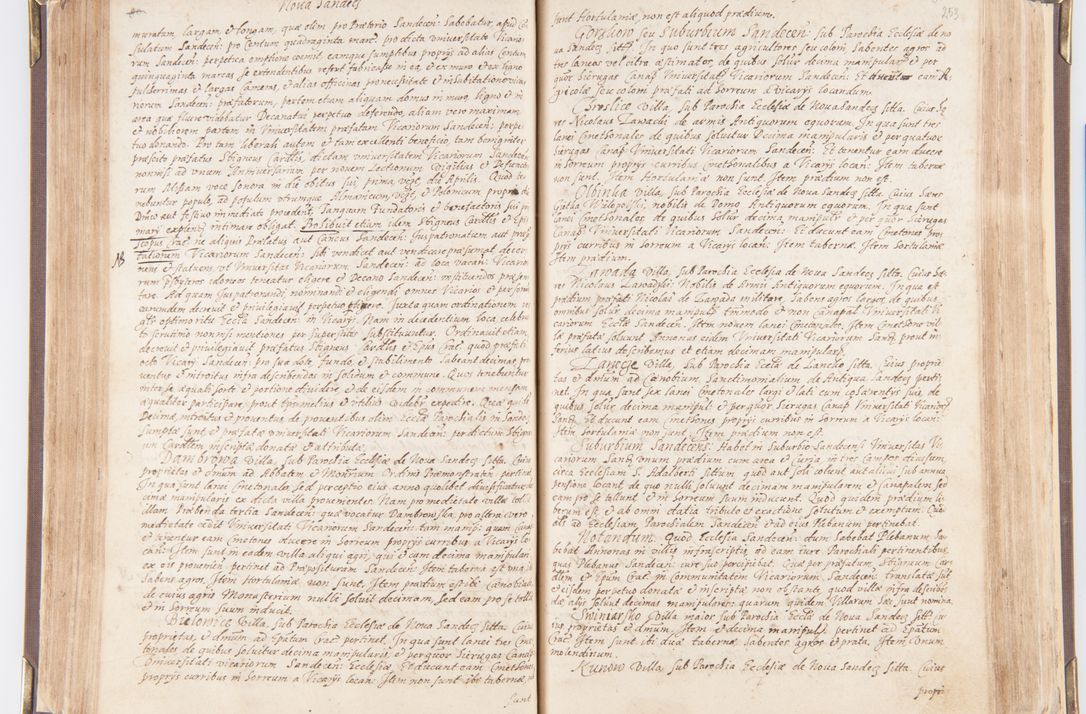 Noua Sandecz
muratam, largam, et longam, quae olim pro Praetorio Sandecen: habebatur, apud Co
sulatum Sandecen: pro Centum quadraginta marc. pro dicta Vniuersitate Vicario
rum Sandecen: perpetua emptione comit. eamque sumptibus proprijs ad alias Centum
quinquaginta marcas se extendentibus refert fabricasse in ea, et ex muro et ex ligno
pulcherrimas et largas Cameras, et alias officinas pro necessitate et inhabitatione vica
riorum Sandecen: praefatorum, portionem aliquam domus in muro, ligno et in
area quae fluuium Decanatus perpetuo deferendo, aliam vero maximam
et nobiliorem partem in Vniuersitatem praefatam Vicariorum Sandecen: perpe
tuo donando. Pro tam liberali autem et tam excellenti beneficio, tam benigniter
praescito praefatus Sbigneus Cardlis, dictam vniuersitatem Vicariorum Sandecen
nonnisi ad vnum Anniuersarium per nouem Lectionum Vigilias et Defuncto
rum Missam voce sonora in die obitus sui, prima vzt. die Aprilis. Quod te
nebuntur populo, ad populum vtrumque Almanicum, vzt. et Polonicum proprio die
Dnico aut festiuo immediate procedent. tanquam Fundatoris et benefactoris sui pri
marij explens, intimare obligat. Prohibuit etiam idem Sbigneus Cardlis et Epi
scopus Crac. ne aliquis Praelatus aut Canicus Sandecen: Iuspatronatum aut praesen
tationem Vicariorum Sandecen: sibi vendicet aut vendicare praesumat, decer
nens et statuens, vt Vniuersitas Vicariorum Sandecen: ad loca vacan: Vicario
rum personas idoneas teneatur eligere et Decano Sandecen: instituendos praesen
tare. Ad quam Iuspatronandi, nominandi et eligendi, omnes Vicarios et personas
earundem decreuit et priuilegiauit perpetuo obtinere. Iuxta quam ordinationem re
gltr optimo ritu Eccla Sandecen: in Vicarijs. Nam in decedentium loca celebra
to scrutinio nonnisi meriores per superstites substituuntur. Ordinauit etiam,
decreuit et priuilegiauit praefatus Sbigneus Cardlis et Epus Crac. quod praefati
octo Vicarij Sandecen: Pro suo dote fundo, et stabilimento habeant decimas pro
uentus et introitus infra describendos in solidum et commune. Quos tenebuntur
inter se aequali sorte et portione diuidere et de eisdem in communem mensam
aequaliter participare, prout ipsi melius et vtilius videbr expedire. Quae quidem
Decimae, introitus et prouentus de prouentibus olim Ecclae Parochialis in Sandecz
sumptae sunt, et praefatae vniuersitati Vicariorum Sandecen: per dictum Sbigne
um Cardlem inscriptae, donatae et attributae.
Dambrowa Villa, sub Parochia Ecclesiae de Noua Sandecz sitta. Cuius
proprietas et dmium ad Abbatem et Monrium Ordinis Praemonstraten: pertinet
In qua sunt lanei Cmetonales, sed perceptio eius anno quolibet diuisificatur de
cimae manipularis ex dicta villa prouenientes. Nam pro medietate villae tollit
illam Praebenda tertia Sandecen: quae vocatur Dambrowska, pro altera vero
medietate cedit Vniuersitati Vicariorum Sandecen: tam manip: quam Canap
et tenentur eam Cmetones ducere in horreum proprijs curribus a Vicarijs lo
can: Item sunt in eadem villa aliqui agri, qui et cum decima manipulari
ex eis proueniens pertinet ad Praeposituram Sandecen: Item taberna est vna, non
habens agros. Item Hortulaniae non sunt. Item praedium est ibi Cenobitarum
de cuius agris Monasterium nulli soluit decimam, sed eam pro se tollit
et in horreum suum inducit.
Bielowice Villa, sub Parochia Ecclesiae de Noua Sandecz sitta, Cuius
proprietas, et dmium ad Epatum Crac. pertinet. In qua sunt lanei tres Cme
tonales de quibus soluitur decima manipularis, et per quor Scirugas Canap
Vniuersitati vicariorum Sandecen: Ecclesiae, et ducunt eam Cmetones
proprijs curribus in horreum a Vicarijs locan: Item non sunt ibi tabernae, nec
sunt
253
sunt Hortulaniae, non est aliquod praedium.
Gorzkow seu Suburbium Sandecen: sub Parochia Ecclesiae de no
ua Sandecz sitt. In quo sunt tres agricultores, seu coloni, habentes agros ad
tres laneos vel citra aestimatos, de quibus solur decima manipular et per
quor Scirugas Canap Vniuersitati Vicariorum Sandecen: Et ducunt eam A
gricolae, seu coloni praefati ad horreum a Vicarijs locandum.
Chroslice Villa, Sub Parochia Ecclesiae de Noua Sandecz sitta. Cuius Hae
res Nicolaus Zawacki de armis Antiquorum equorum. In qua sunt tres
lanei Cmetonales de quibus soluitur Decima manipularis et per quatuor
Scirugas Canap Vniuersitati Vicariorum Sandecen: Et tenentur eam ducere
in horreum proprijs curribus Cmetonalibus a Vicarijs locan: Item tabernae
non sunt. Item Hortulaniae non sunt. Item praedium non est.
Olbinka Villa, Sub Parochia Ecclesiae de Noua Sandecz sitta. Cuius Haeres
Gabla Wielopolski, nobilis de Domo Antiquorum equorum. In qua sunt
lanei Cmetonales de quibus solur decima manipulr et per quor Scirugas
Canap Vniuersitati Vicariorum Sandecen: Et ducunt eam Cmetones pro
prijs curribus in horreum a Vicarijs locan: Item tabernae, Item Hortulaniae
Item praedium.
Zawada Villa, Sub Parochia Ecclesiae de Noua Sandecz sitta. Cuius Hae
res Nicolaus Zawadski Nobilis de Armis Antiquorum equorum. In qua est
praedium praefati Nicolai de Zawada militare, habens agros largos, de quibus
omnibus solur decima manipulr tmmodo et non canapal Vniuersitati Vi
cariorum Ecclae Sandecen: Item nouem lanei Cmetonales. Item Cmetones vil
lae praefatae soluunt Annonas eidem Vniuersitati Vicariorum Sandec. prout in
ferius latius describemus et etiam decimam manipularem.
Lanecz Villa, Sub Parochia Ecclae de Lancko sitta, Cuius proprie
tas et dmium ad Caenobium Sanctimonialium de Antiqua Sandecz perti
net. In qua sunt sex lanei Cmetonales largi et lati cum coharentijs suis, de
quibus solur decima manipul. et per quor Scirugas Canap Vniuersitati Vicariorum
Sand: Et ducunt eam Cmetones proprijs curribus in horreum a Vicarijs locan:
Item Hortulaniae non sunt. Item praedium non est.
Suburbium Sandecens. Habet in Suburbio Sandecens Vniuersitas Vi
cariorum Sand. vnum praedium cum area et curia in tres Campos diuisum,
circa Ecclesiam S. Adalberti sittum quod aut soli colunt aut alicui sub annua
pensione locant, de quo nulli soluunt decimam manipularem et canapalem, sed
eam pro se tollunt et in horreum suum inducunt. Quod quidem praedium li
berum est et ab omni datia, tributo et exactione solutum et exemptum. Qua
oli ad Ecclesiam Parochialem Sandecen: et ad eius Plebanum pertinebat.
Notandum. Quod Ecclesia Sandecen: dum habebat Plebanum ha
bebat Annonas in villis infrascriptis, ad eam iure Parochiali pertinentibus
quas Plebanus Sandecen: iure suo percipiebat. Quae per praefatum Sbigneum Car
dlem et Epum Crac. in Communitatem Vicariorum Sandecen: translatae sut
et eisdem perpetuo donatae et inscriptae, non obstante, quod villae infra describen
dae alijs soluunt decimas manipularem quarum quidem Villarum haec sunt nomina
Swiniarsko Villa maior sub Parochia Eccla de Noua Sandecz sitt. cu
ius proprietas et dmium. Item et decima manipul. pertinet ad Epatum
Crac. Item sunt ibi duae tabernae habentes agros et prata, Item Vnum
molendinum.
Kunow Villa Sub Parochia Ecclesiae de Noua Sandecz sitta. Cuius
propri